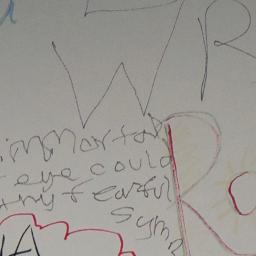 W R
immortal
eye could
thy fearful
Symm
Ro
IA